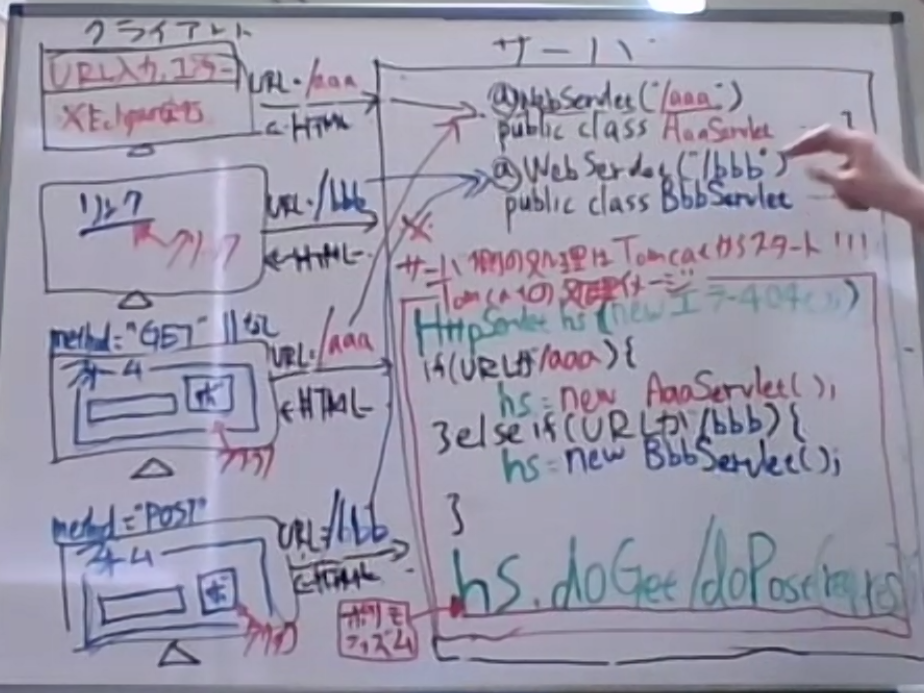 クライアント
URL入力、エンター
※Eclipseなら
URL:/aaa
←HTML
リンク
クリック
URL:/bbb
←HTML
method="GET" ||なし
フォーム
ボ
クリック
URL:/aaa
←HTML
method="POST"
フォーム
ボ
クリック
URL:/bbb
←HTML
サーバ
@WebServlet("/aaa")
public class AaaServlet
@WebServlet("/bbb")
public class BbbServlet
※
サーバ側の処理はTomcatからスタート!!!
Tomcatの処理イメージ
HttpServlet hs (newエラー404();)
if(URLが/aaa){
hs=new AaaServlet();
}else if(URLが/bbb){
hs=new BbbServlet();
}
hs.doGet/doPost(reques
ポリモ
フィズム